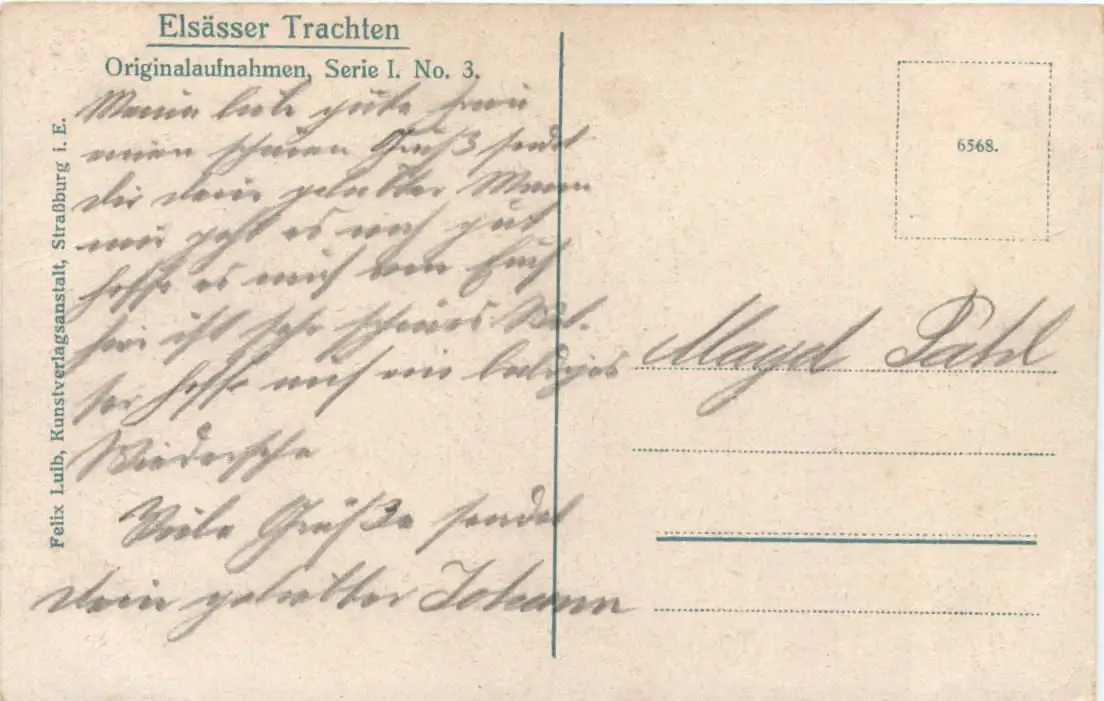 Elsässer Trachten
Originalaufnahmen, Serie I. No. 3.
Felix Luib, Kunstverlagsanstalt, Straßburg i. E.
6568.
Meine liebe gute Frau
einen schönen Gruß sendet
dir dein geliebter Mann
mir geht es noch gut
hoffe es auch von Euch
hier ist sehr schönes Wet-
ter hoffe auf ein baldiges
Wiedersehe
Viele Grüße sendet
dein geliebter Johann
Magd Pahl